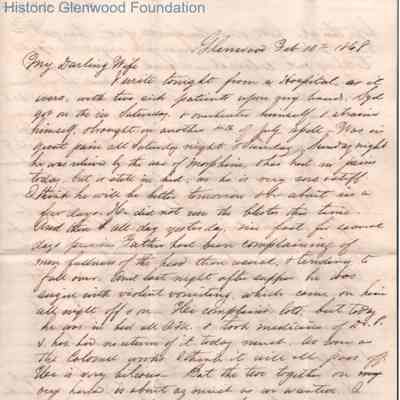 Historic Glenwood Foundation
Glenwood Feb 10th 1868
My Darling Wife
I write tonight from a Hospital, as it
were, with two sick patients upon my hand. Syd
got on the ice Saturday, & overheated himself, & strained
himself, & brought on another 4th of July spell. Was in
great pain all Saturday night & Sunday. Sunday night
he was relieved by the use of Morphine. Has had no pain
today, but is still in bed, as he is very sore & stiff.
I think he will be better tomorrow & be about in a
few days. He did not use the blister this time.
Used it all day yesterday. In fact for several
days Father had been complaining of
more fullness of the head than usual, & tending to
fall over. And last night after supper he was
with violent vomiting, which came on him
all night off & on. He complains lots, but today
he was in bed all day, & took medicine of
& has had no return of it today much. As soon as
the Calomel works I think it will all pass off.
He is very bilious. But the two together on my
hands is about as much as I